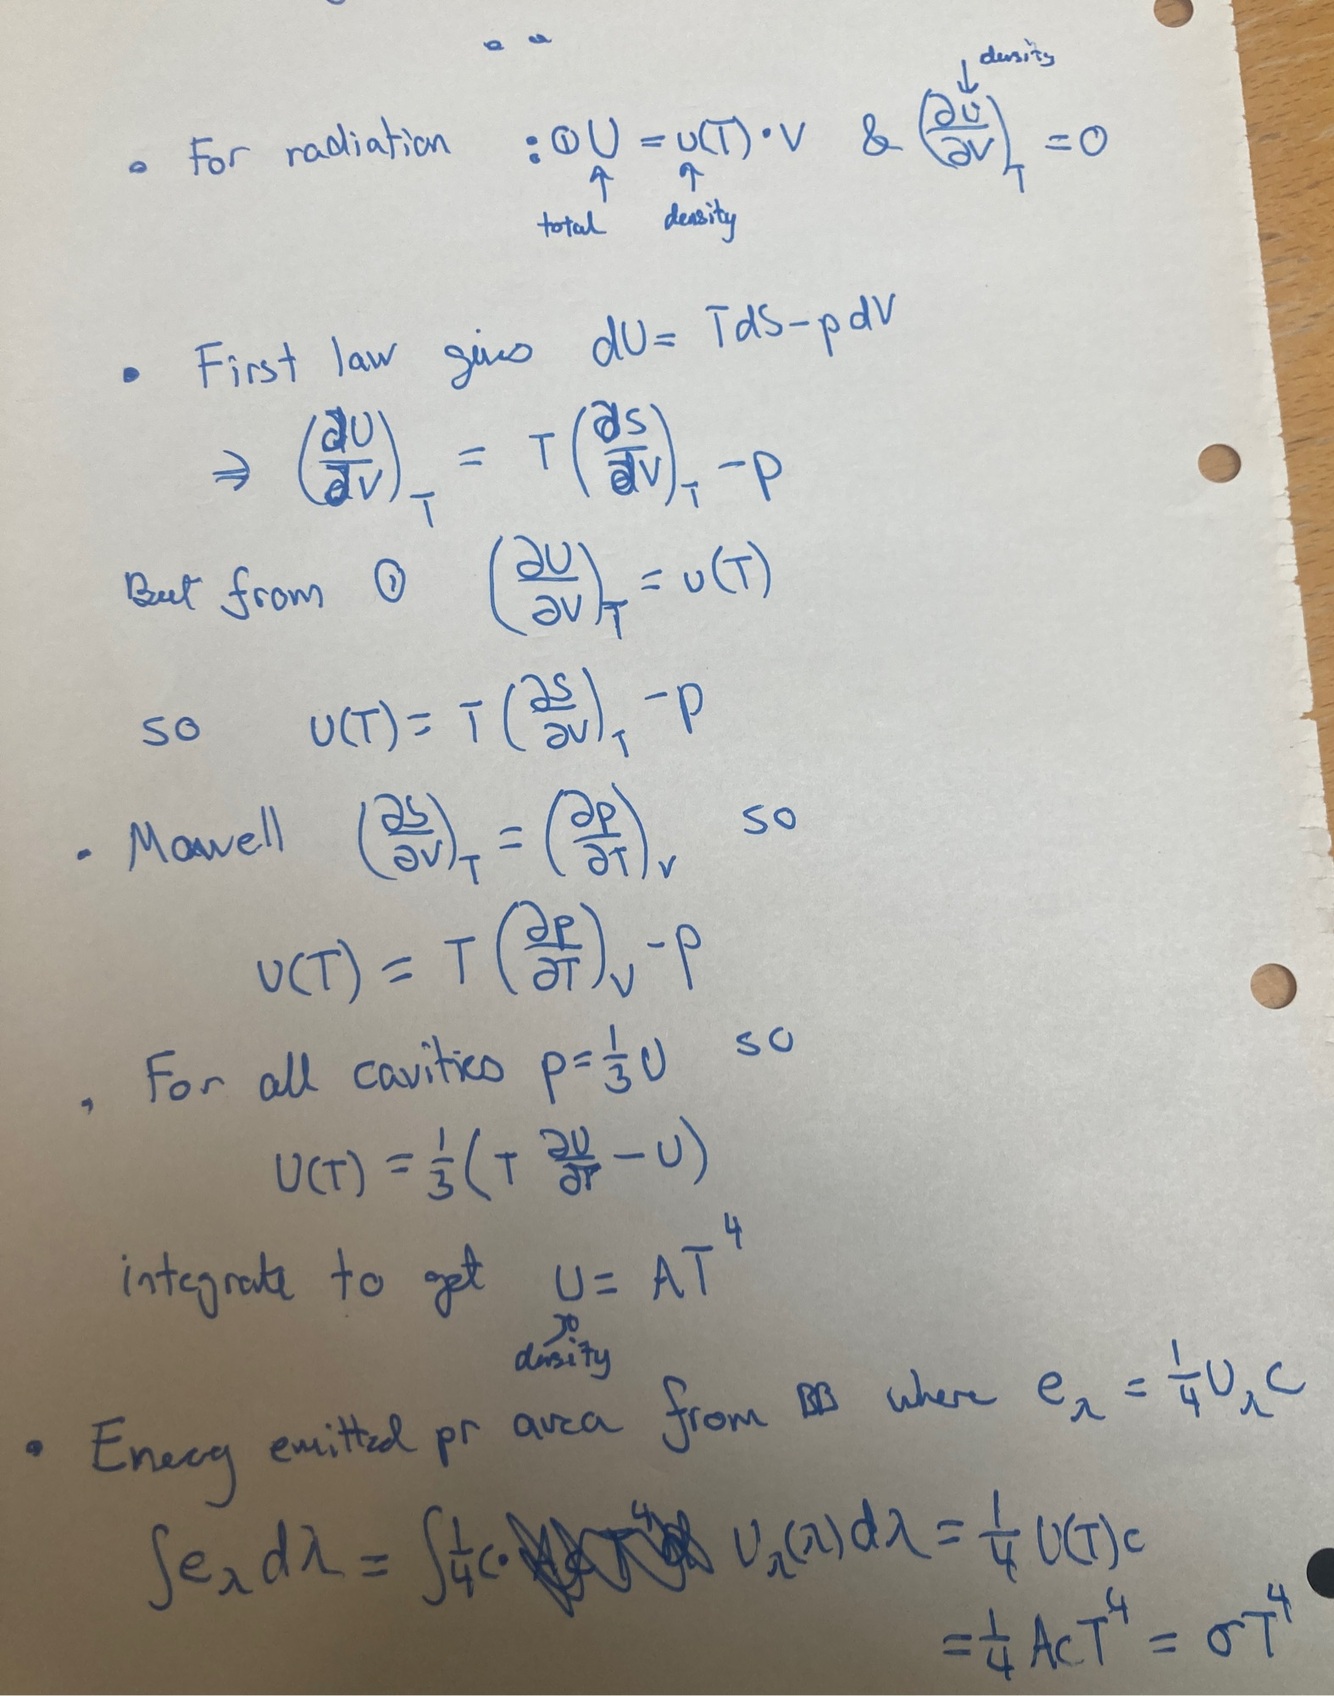 density
• For radiation : ① U = u(T) · V & (∂u/∂V)_T = 0
total density
• First law gives dU = TdS - pdV
⇒ (∂U/∂V)_T = T (∂S/∂V)_T - p
But from ① (∂U/∂V)_T = u(T)
so u(T) = T (∂S/∂V)_T - p
• Maxwell (∂S/∂V)_T = (∂p/∂T)_V so
u(T) = T (∂p/∂T)_V - p
• For all cavities p = 1/3 u so
u(T) = 1/3 (T ∂u/∂T - u)
integrate to get u = AT⁴
density
• Energy emitted pr area from BB where e_λ = 1/4 u_λ c
∫e_λ dλ = ∫1/4 c · u_λ(λ)dλ = 1/4 u(T)c
= 1/4 AcT⁴ = σT⁴